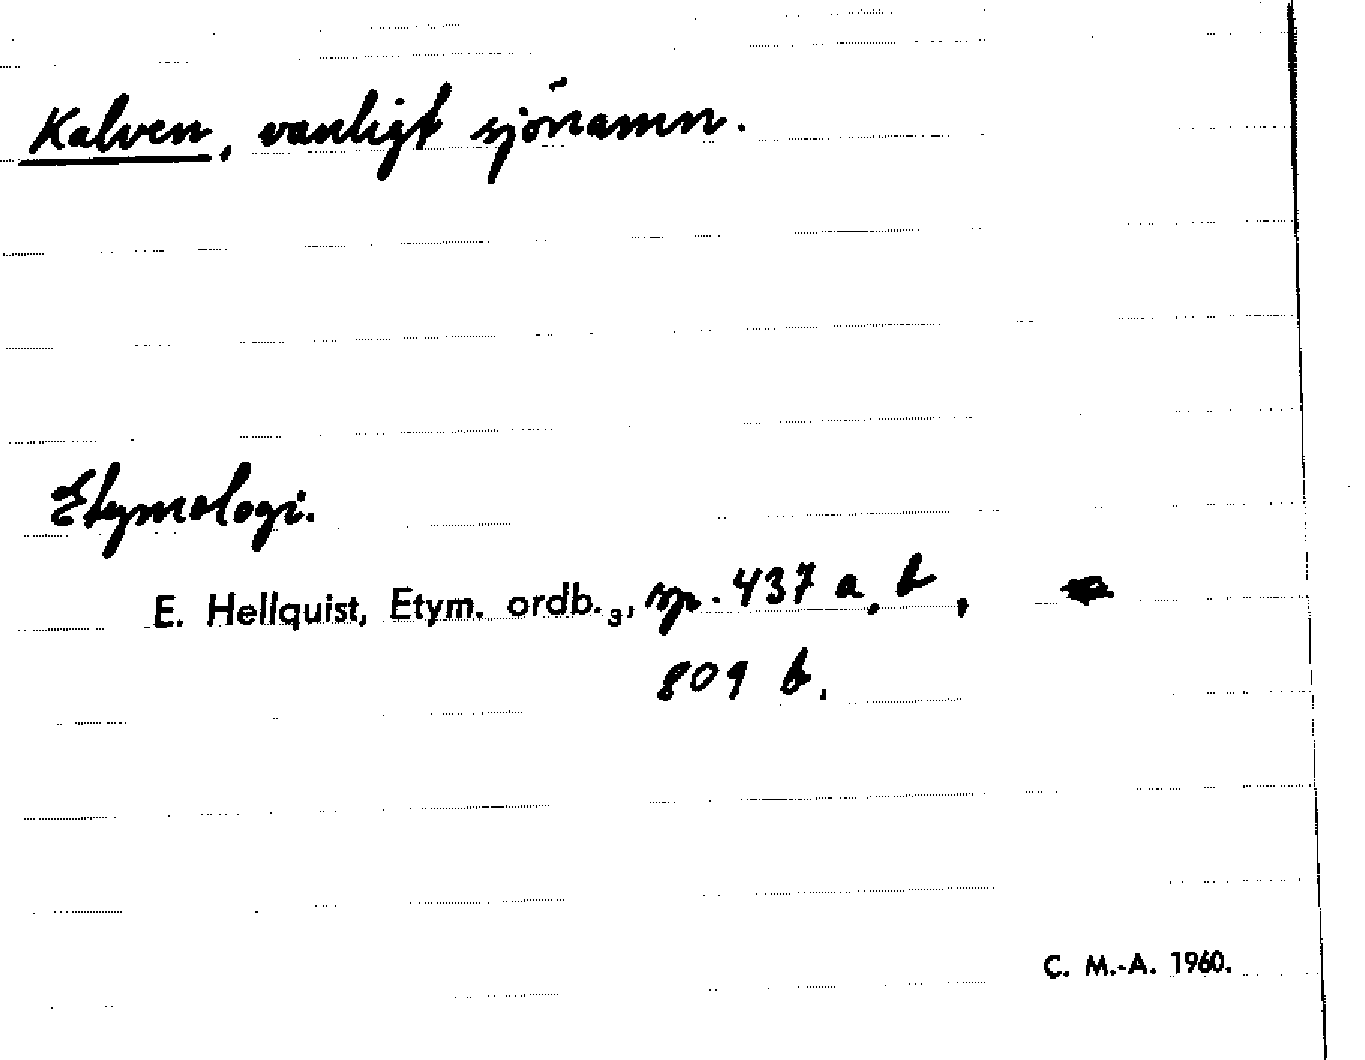 Kalven, vanligt sjönamn.
Etymologi.
E. Hellquist, Etym. ordb.₃, sp. 437 a, b,
809 b.
C. M.-A. 1960.